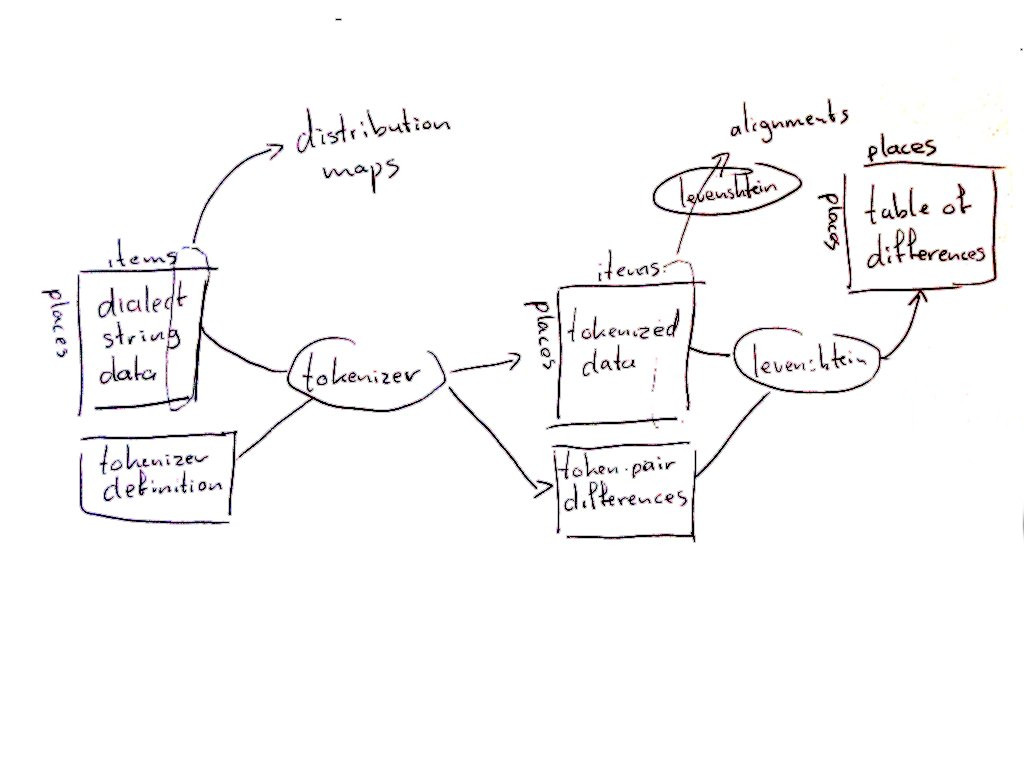 distribution
maps
items
places
dialect
string
data
tokenizer
definition
tokenizer
alignments
levenshtein
items
places
tokenized
data
token-pair
differences
levenshtein
places
places
table of
differences